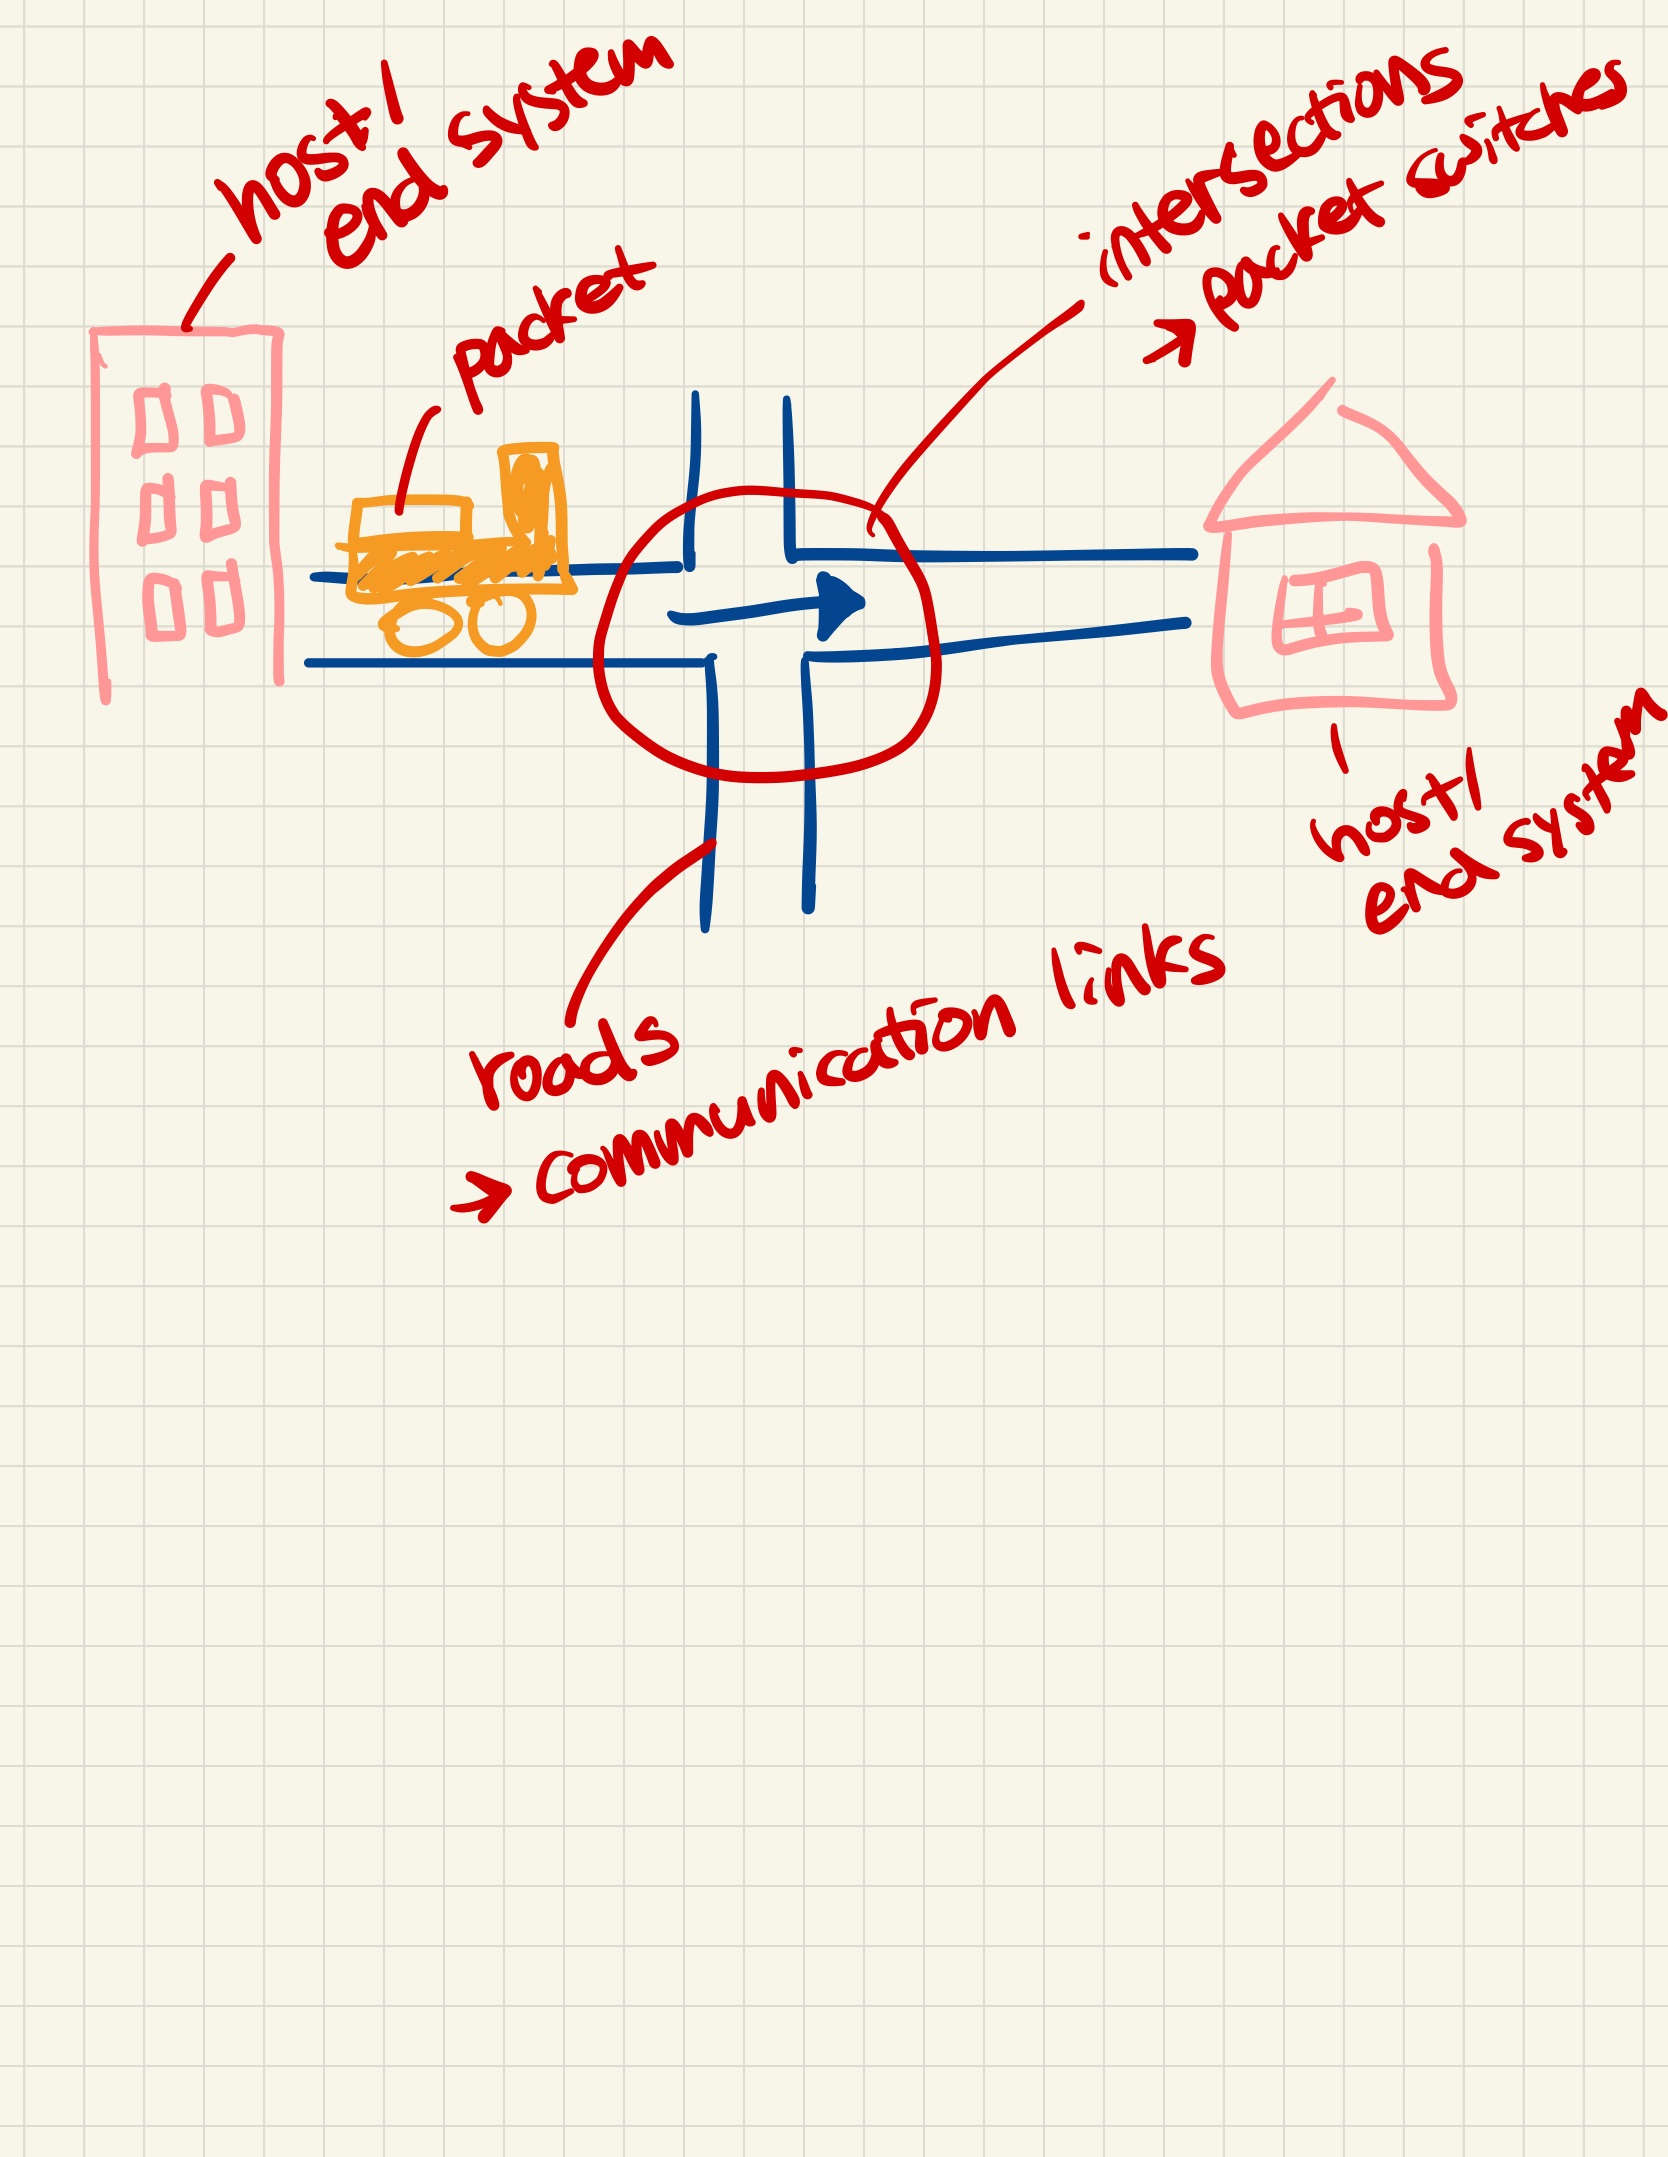 host/
end system
packet
intersections
→ packet switches
host/
end system
roads
→ communication links